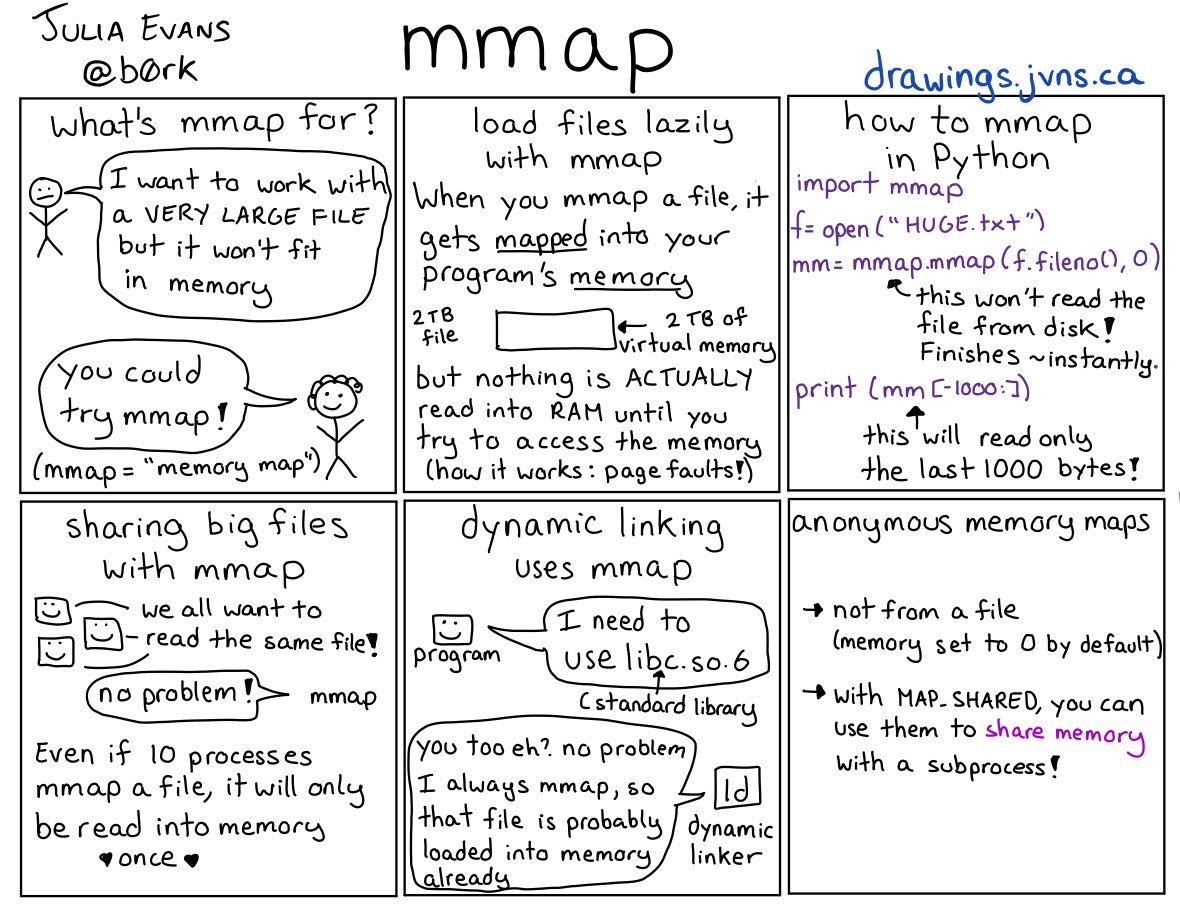 JULIA EVANS
@b0rk
mmap
drawings.jvns.ca
what's mmap for?
I want to work with
a VERY LARGE FILE
but it won't fit
in memory
you could
try mmap!
(mmap = "memory map")
load files lazily
with mmap
When you mmap a file, it
gets mapped into your
program's memory
2 TB
file
← 2 TB of
virtual memory
but nothing is ACTUALLY
read into RAM until you
try to access the memory
(how it works: page faults!)
how to mmap
in Python
import mmap
f= open("HUGE.txt")
mm= mmap.mmap(f.fileno(), 0)
this won't read the
file from disk!
Finishes ~instantly.
print (mm[-1000:])
this will read only
the last 1000 bytes!
sharing big files
with mmap
we all want to
read the same file!
no problem!
mmap
Even if 10 processes
mmap a file, it will only
be read into memory
♥ once ♥
dynamic linking
uses mmap
program
I need to
use libc.so.6
C standard library
you too eh? no problem
I always mmap, so
that file is probably
loaded into memory
already
ld
dynamic
linker
anonymous memory maps
→ not from a file
(memory set to 0 by default)
→ with MAP_SHARED, you can
use them to share memory
with a subprocess!